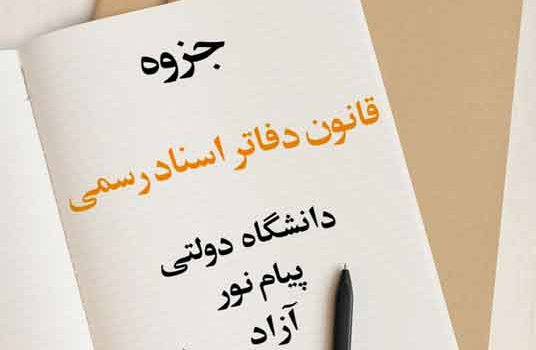 جزوه
قانون دفاتر اسناد رسمی
دانشگاه دولتی
پیام نور
آزاد